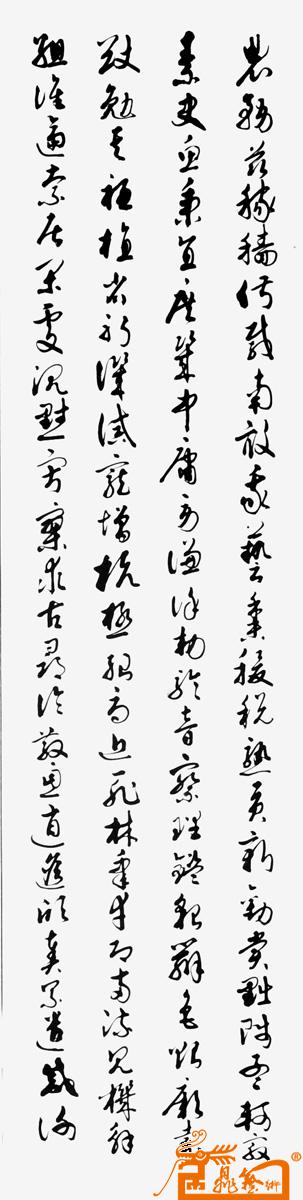 農務茲稼穡俶載南畝我藝黍稷稅熟貢新勸賞黜陟孟軻敦
素史魚秉直庶幾中庸勞謙謹敕聆音察理鑒貌辨色貽厥嘉
猷勉其祗植省躬譏誡寵增抗極殆辱近恥林皋幸即兩疏見機解
組誰逼索居閒處沉默寂寥求古尋論散慮逍遙欣奏累遣慼謝